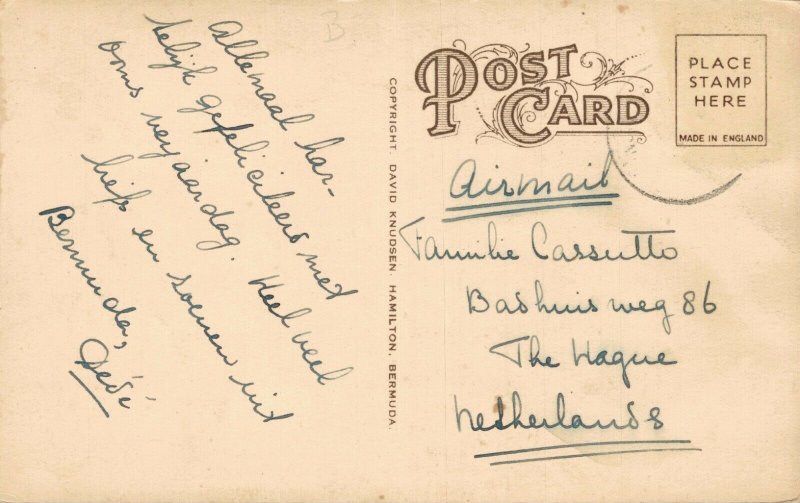 Allemaal har-
telijk gefeliciteerd met
ooms verjaardag. Heel veel
liefs en zoenen uit
Bermuda,
Dédé
COPYRIGHT. DAVID KNUDSEN. HAMILTON, BERMUDA.
POST CARD
PLACE
STAMP
HERE
MADE IN ENGLAND
Airmail
Familie Cassutto
Bad huis weg 86
The Hague
Netherlands